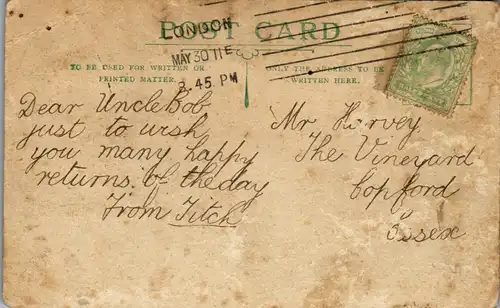 POST CARD
LONDON
MAY 30 11 E
3.45 PM
TO BE USED FOR WRITTEN OR
PRINTED MATTER.
ONLY THE ADDRESS TO BE
WRITTEN HERE.
Dear Uncle Bob
just to wish
you many happy
returns of the day
From Titch
Mr Harvey
The Vineyard
Copford
Essex